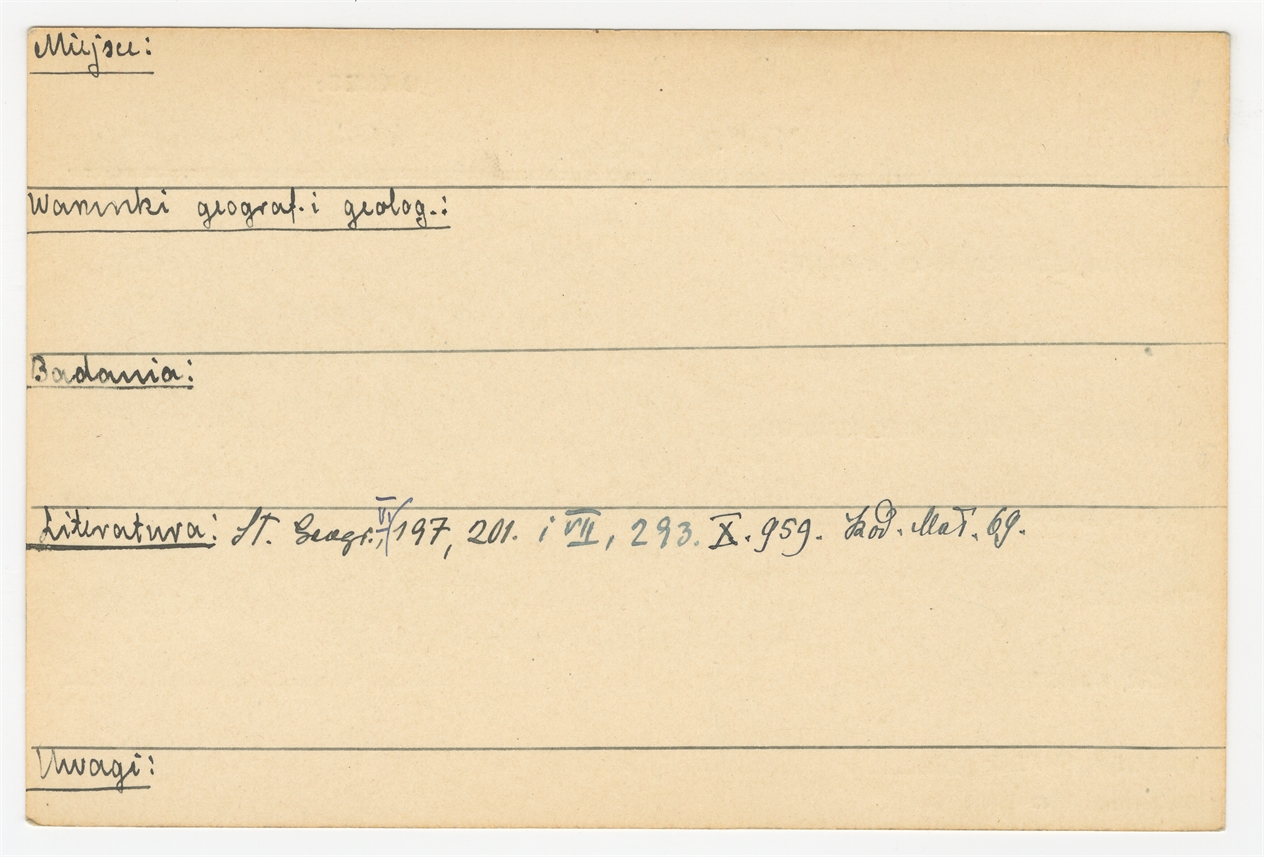 Miejsce:
Warunki geograf. i geolog.:
Badania:
Literatura: Sł. Geogr., VI/197, 201. i VII, 293. X. 959. Kod. Mał. 69.
Uwagi: